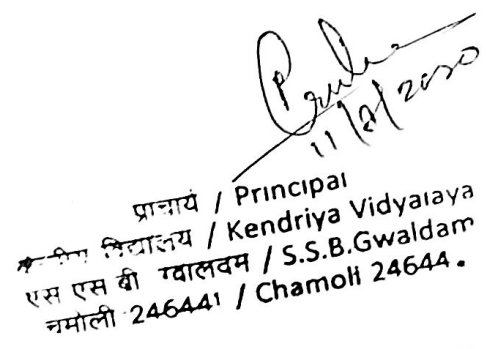 11/2/2020
प्राचार्य / Principal
विद्यालय / Kendriya Vidyalaya
एस एस बी ग्वालदम / S.S.B.Gwaldam
चमोली 246441 / Chamoli 24644